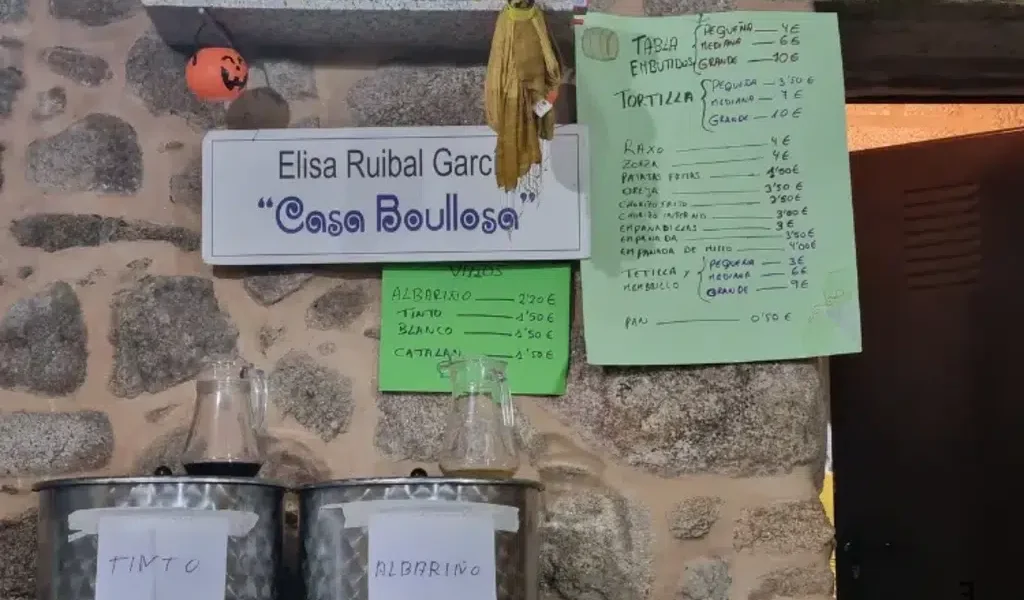 Elisa Ruibal Garc
"Casa Boullosa"
VINOS
ALBARIÑO 2'20€
TINTO 1'50€
BLANCO 1'50€
CATALAN 1'50€
TABLA EMBUTIDOS
PEQUEÑA 4€
MEDIANA 6€
GRANDE 10€
TORTILLA
PEQUEÑA 3'50€
MEDIANA 7€
GRANDE 10€
RAXO 4€
ZORZA 4€
PATATAS FRITAS 1'00€
OREJA 3'50€
CHORIZO FRITO 2'50€
CHORIZO INFIERNO 3'00€
EMPANADILLAS 3€
EMPANADA 3'50€
EMPANADA DE MILLO 4'00€
TETILLA Y MEMBRILLO
PEQUEÑA 3€
MEDIANA 6€
GRANDE 9€
PAN 0'50€
TINTO
ALBARIÑO